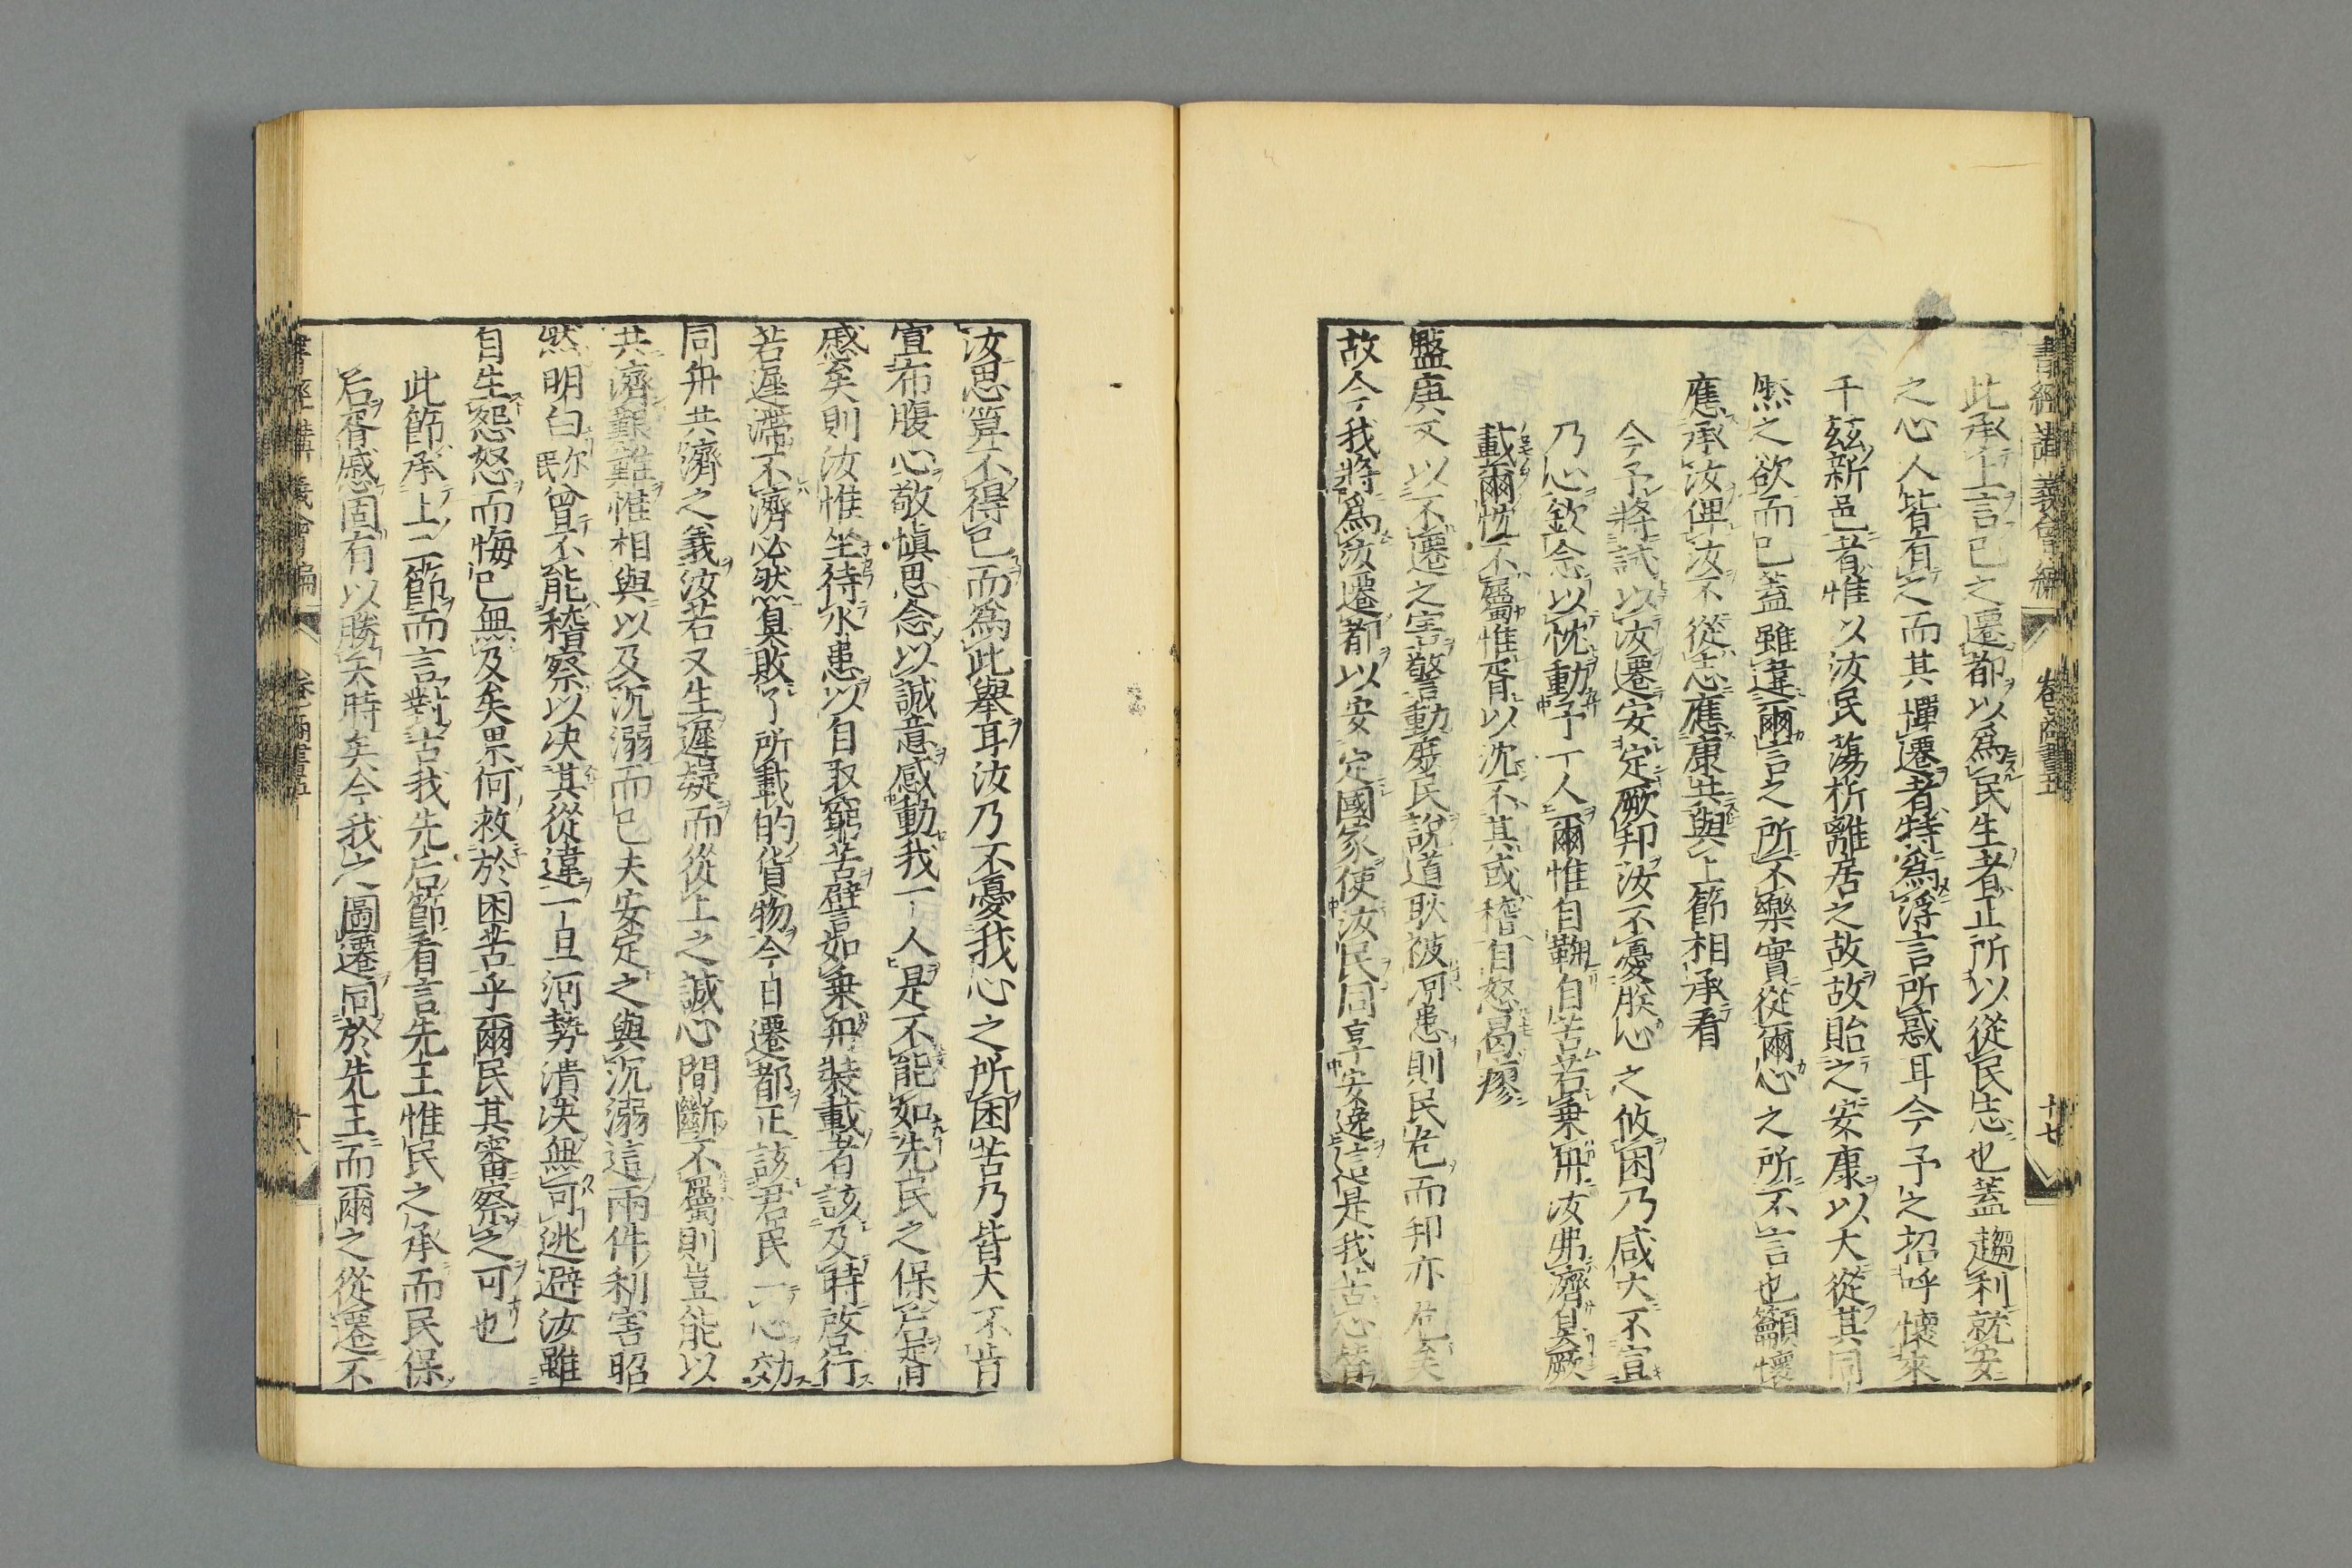 書經講義會編 卷 商書 十七
此承上言已之遷都以爲民生者正所以從民志也蓋趨利就安
之心人皆有之而其憚遷者特爲浮言所惑耳今予之招呼懷來
于茲新邑者惟以汝民蕩析離居之故故貽之安康以大從其同
然之欲而已蓋雖違爾言之所不樂實從爾心之所不言也籲懷
應承汝俾汝不從志應康共與上節相承看
今予將試以汝遷安定厥邦汝不憂朕心之攸困乃咸大不宣
乃心欽念以忱動予一人爾惟自鞠自苦若乗舟汝弗濟臭厥
載爾忱不屬惟胥以沈不其或稽自怒曷瘳
盤庚又以不遷之害警動庶民說道耿被河患則民危而邦亦危矣
故今我將爲汝遷都以安定國家使汝民同享安逸這是我苦心皆
汝思算不得已而爲此舉耳汝乃不憂我心之所困苦乃皆大不肯
宣布腹心敬愼思念以誠意感動我一人是不能如先民之保后胥
慼矣則汝惟坐待水患以自取窮苦譬言如乗舟裝載者該及時啓行
若遲滯不濟必然臭敗了所載的貨物今日遷都正該君民一心効
同舟共濟之義汝若又生遲疑而從上之誠心間斷不屬則豈能以
共濟艱難惟相與以及沉溺而已夫安定之與沉溺這兩件利害昭
然明白你民曾不能稽察以决其從違一旦河勢潰决無可逃避汝雖
自生怨怒而悔已無及矣果何救於困苦乎爾民其審察之可也
此節承上二節而言對古我先后節看言先王惟民之承而民保
后胥慼固有以勝天時矣今我之圖遷同於先王而爾之從遷不
書經講義會編 卷 商書 十八